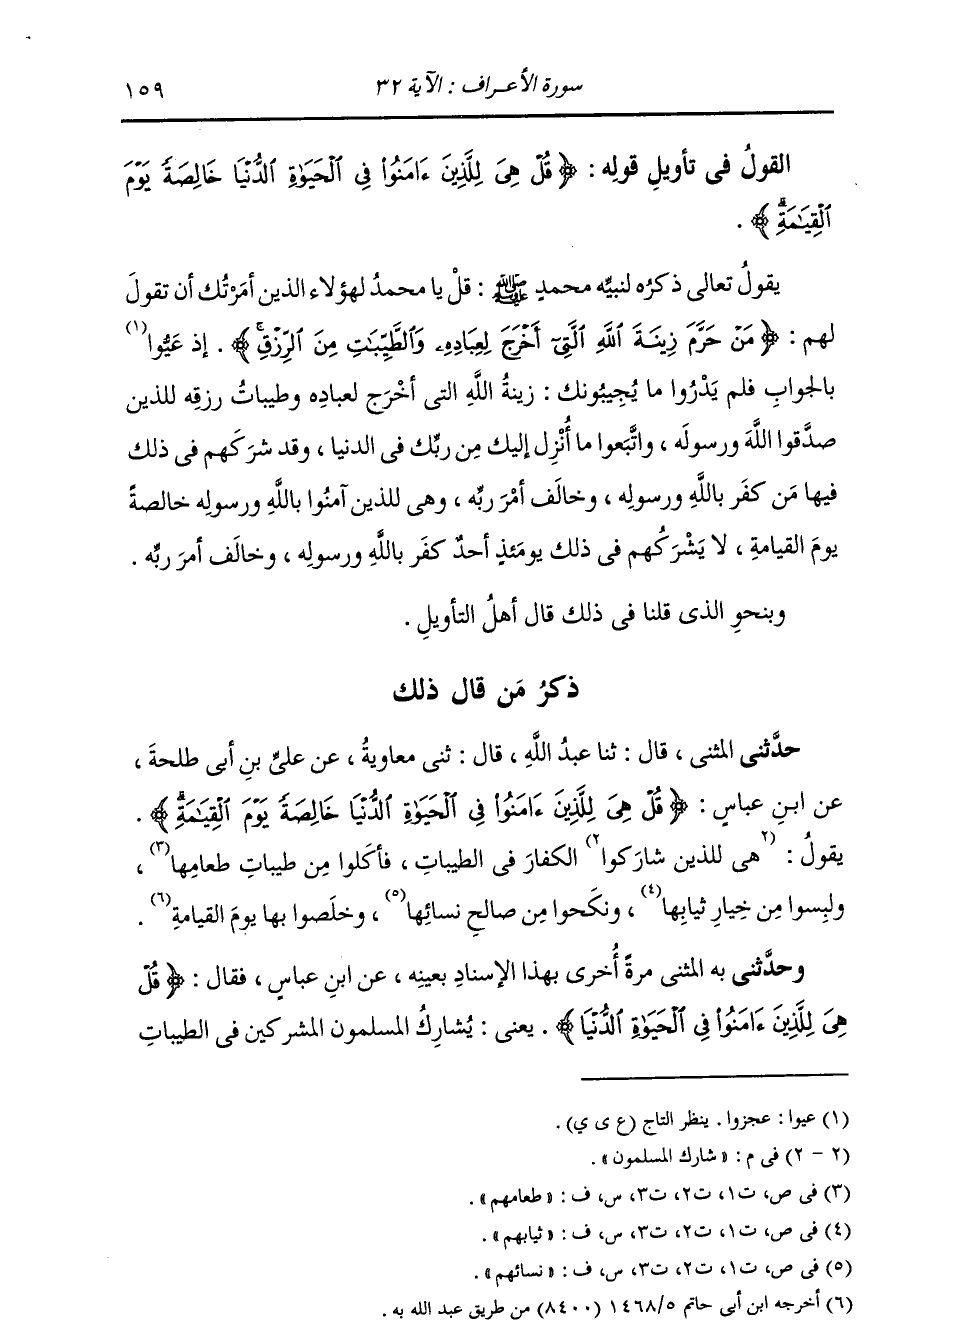 سورة الأعراف : الآية ٣٢
١٥٩
القولُ فى تأويلِ قولِه : ﴿ قُلْ هِىَ لِلَّذِينَ ءَامَنُوا۟ فِى ٱلْحَيَوٰةِ ٱلدُّنْيَا خَالِصَةً يَوْمَ
ٱلْقِيَـٰمَةِۗ ﴾ .
يقولُ تعالى ذكرُه لنبيِّه محمدٍ ﷺ : قلْ يا محمدُ لهؤلاء الذين أمَرْتُك أن تقولَ
لهم : ﴿ مَنْ حَرَّمَ زِينَةَ ٱللَّهِ ٱلَّتِىٓ أَخْرَجَ لِعِبَادِهِۦ وَٱلطَّيِّبَـٰتِ مِنَ ٱلرِّزْقِۚ ﴾ . إذ عَيُّوا(١)
بالجوابِ فلم يَدْرُوا ما يُجِيبُونك : زينةُ اللَّهِ التى أخْرَج لعبادِه وطيباتُ رزقِه للذين
صدَّقوا اللَّهَ ورسولَه ، واتَّبَعوا ما أُنْزِل إليك مِن ربِّك فى الدنيا ، وقد شرَكَهم فى ذلك
فيها مَن كفَر باللَّهِ ورسولِه ، وخالَف أمْرَ ربِّه ، وهى للذين آمنُوا باللَّهِ ورسولِه خالصةً
يومَ القيامةِ ، لا يَشْرَكُهم فى ذلك يومَئذٍ أحدٌ كفَر باللَّهِ ورسولِه ، وخالَف أمرَ ربِّه .
وبنحوِ الذى قلنا فى ذلك قال أهلُ التأويلِ .
ذكرُ مَن قال ذلك
حدَّثنى المثنى ، قال : ثنا عبدُ اللَّهِ ، قال : ثنى معاويةُ ، عن علىِّ بنِ أبى طلحةَ ،
عن ابنِ عباسٍ : ﴿ قُلْ هِىَ لِلَّذِينَ ءَامَنُوا۟ فِى ٱلْحَيَوٰةِ ٱلدُّنْيَا خَالِصَةً يَوْمَ ٱلْقِيَـٰمَةِۗ ﴾ .
يقولُ : (٢هى للذين شارَكوا٢) الكفارَ فى الطيباتِ ، فأكَلوا مِن طيباتِ طعامِها(٣) ،
ولبِسوا مِن خِيارِ ثيابِها(٤) ، ونكَحوا مِن صالحِ نسائِها(٥) ، وخلَصوا بها يومَ القيامةِ(٦) .
وحدَّثنى به المثنى مرةً أُخرى بهذا الإسنادِ بعينِه ، عن ابنِ عباسٍ ، فقال : ﴿ قُلْ
هِىَ لِلَّذِينَ ءَامَنُوا۟ فِى ٱلْحَيَوٰةِ ٱلدُّنْيَا ﴾ . يعنى : يُشارِكُ المسلمون المشركين فى الطيباتِ
(١) عيوا : عجزوا . ينظر التاج (ع ى ي) .
(٢ - ٢) فى م : « شارك المسلمون » .
(٣) فى ص، ت١، ت٢، ت٣، س، ف : « طعامهم » .
(٤) فى ص، ت١، ت٢، ت٣، س، ف : « ثيابهم » .
(٥) فى ص، ت١، ت٢، ت٣، س، ف : « نسائهم » .
(٦) أخرجه ابن أبى حاتم ١٤٦٨/٥ (٨٤٠٠) من طريق عبد الله به .